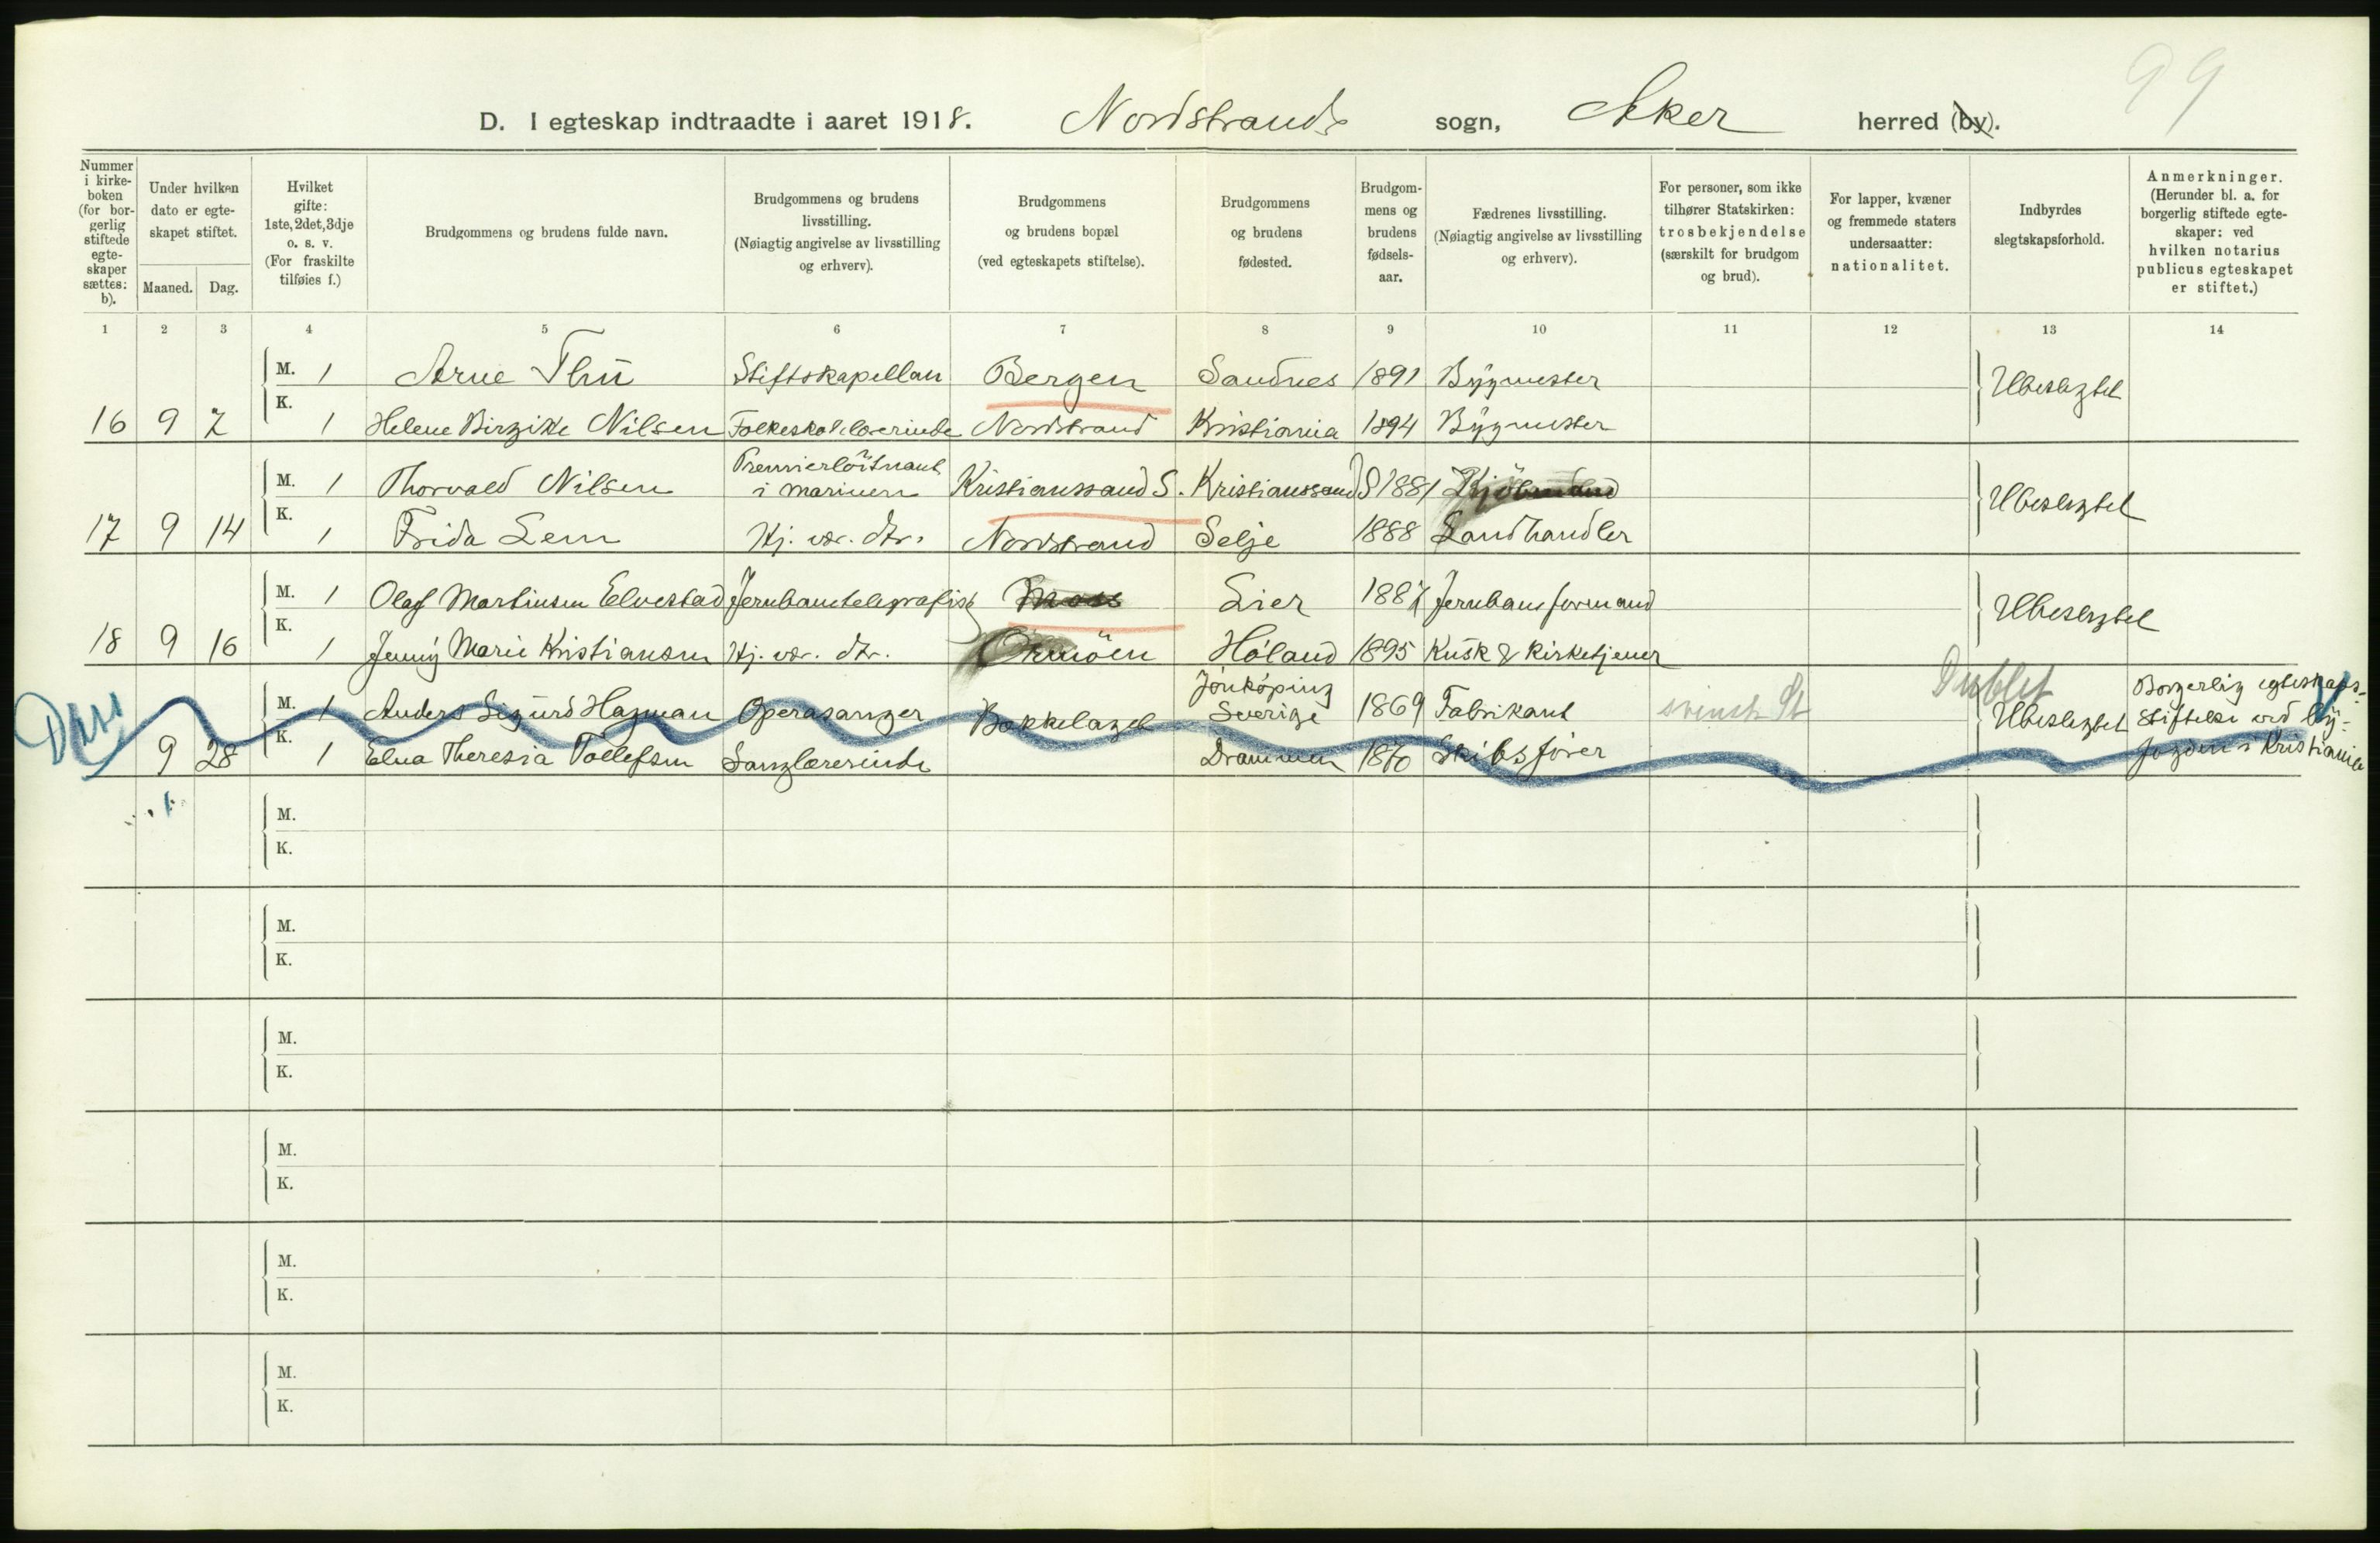 99
D. I egteskap indtraadte i aaret 1918. Nordstrands sogn, Aker herred (by).
Nummer i kirkeboken (for borgerlig stiftede egteskaper sættes: b).
Under hvilken dato er egteskapet stiftet.
Maaned. Dag.
Hvilket gifte: 1ste, 2det, 3dje o. s. v. (For fraskilte tilføies f.)
Brudgommens og brudens fulde navn.
Brudgommens og brudens livsstilling. (Nøiagtig angivelse av livsstilling og erhverv).
Brudgommens og brudens bopæl (ved egteskapets stiftelse).
Brudgommens og brudens fødested.
Brudgommens og brudens fødselsaar.
Fædrenes livsstilling. (Nøiagtig angivelse av livsstilling og erhverv).
For personer, som ikke tilhører Statskirken: trosbekjendelse (særskilt for brudgom og brud).
For lapper, kvæner og fremmede staters undersaatter: nationalitet.
Indbyrdes slegtskapsforhold.
Anmerkninger. (Herunder bl. a. for borgerlig stiftede egteskaper: ved hvilken notarius publicus egteskapet er stiftet.)
1 2 3 4 5 6 7 8 9 10 11 12 13 14
M. 1 Arne Thu Stiftskapellan Bergen Sandnes 1891 Bygmester Ubeslegtet
16 9 7 K. 1 Helene Birgitte Nilsen Folkeskolelærerinde Nordstrand Kristiania 1894 Bygmester
M. 1 Thorvald Nilsen Premierløitnant i marinen Kristianssand S. Kristianssand S 1881 Kjöbmand Ubeslegtet
17 9 14 K. 1 Frida Lem Hj. vær. dtr. Nordstrand Selje 1888 Landhandler
M. 1 Olaf Martinsen Elvestad Jernbanetelegrafist Moss Lier 1887 Jernbaneformand Ubeslegtet
18 9 16 K. 1 Jenny Marie Kristiansen Hj. vær. dtr. Ormöen Høland 1895 Kusk & Kirketjener
M. 1 Anders Sigurd Hagman Operasanger Bækkelaget Jönköping Sverige 1869 Fabrikant svensk St Dublet Ubeslegtet Borgerlig egteskaps-
stiftelse ved by-
9 28 K. 1 Elna Theresia Tollefsen Sanglærerinde Drammen 1870 Skibsfører fogden i Kristiania
M.
K.
M.
K.
M.
K.
M.
K.
M.
K.
M.
K.